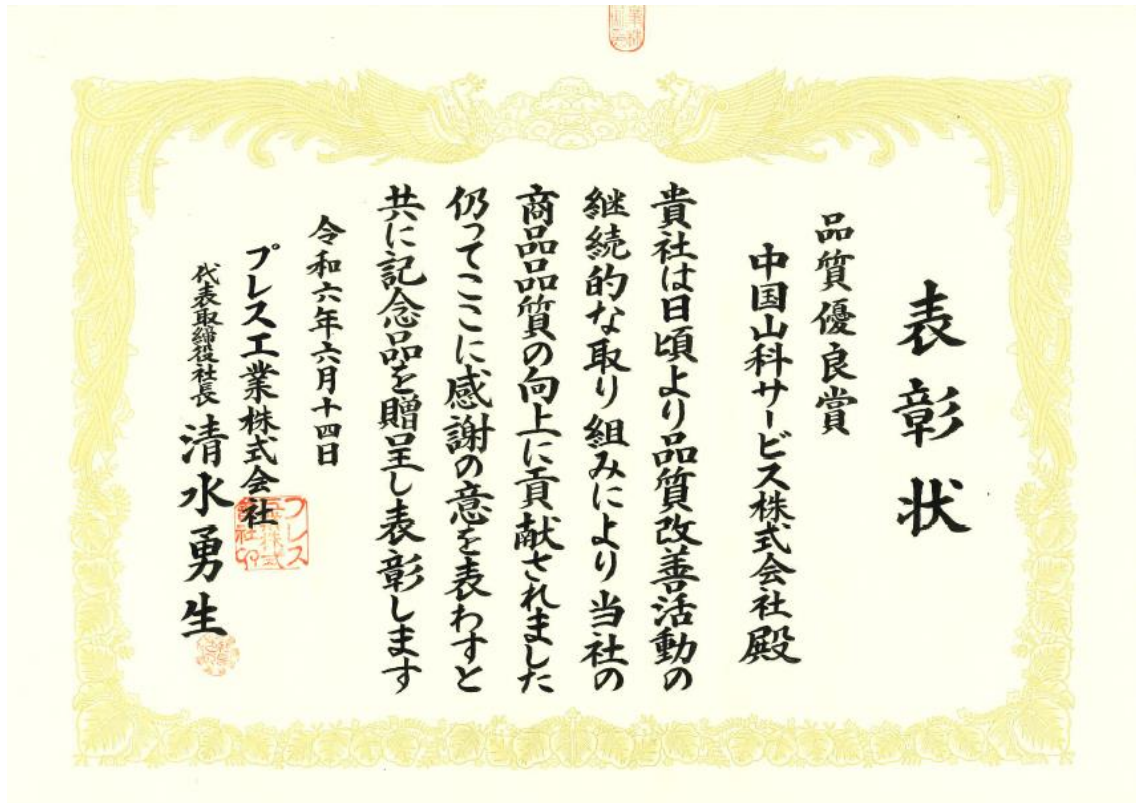 表彰状
品質優良賞
中国山科サービス株式会社殿
貴社は日頃より品質改善活動の
継続的な取り組みにより当社の
商品品質の向上に貢献されました
仍ってここに感謝の意を表わすと
共に記念品を贈呈し表彰します
令和六年六月十四日
プレス工業株式会社
代表取締役社長 清水勇生